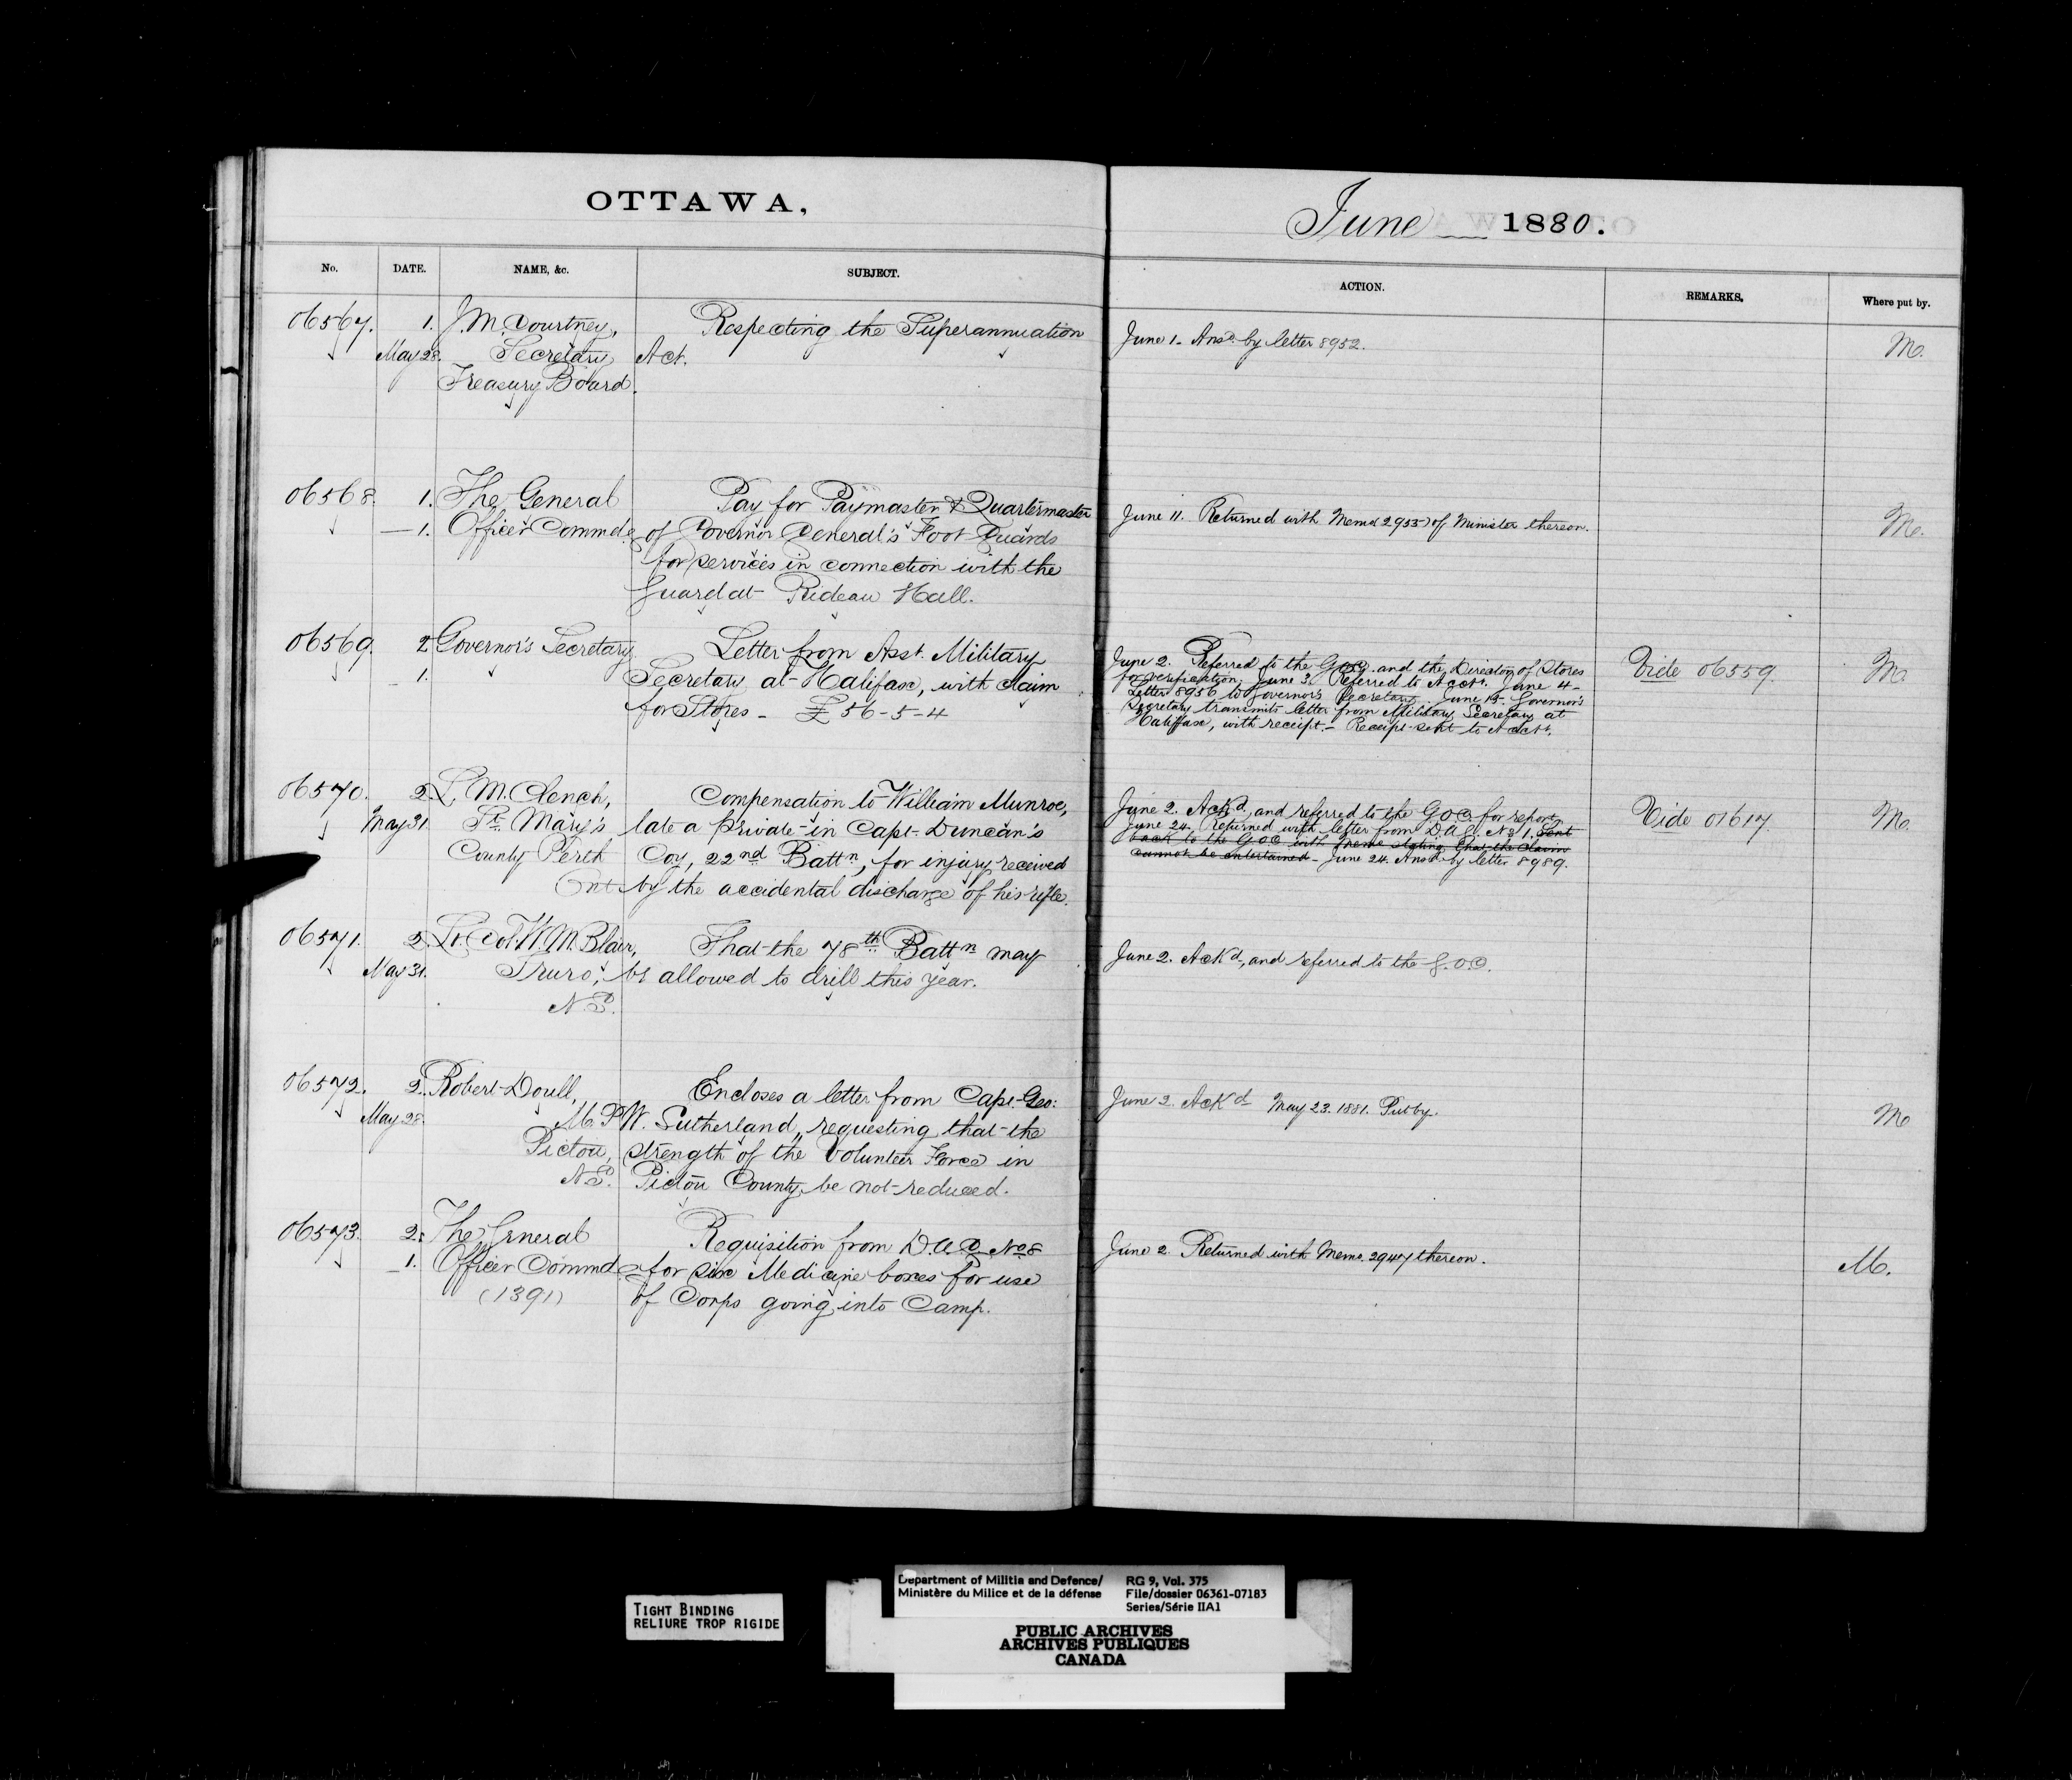 OTTAWA,
June 1880.
No. DATE. NAME, &c. SUBJECT. ACTION. REMARKS. Where put by.
06567. 1. J. M. Courtney, Respecting the Superannuation
May 28. Secretary Act.
Treasury Board.
June 1. Ansd. by letter 8952.
M.
06568. 1. The General Pay for Paymaster & Quartermaster
1. Officer Commdg of Governor General's Foot Guards
for services in connection with the
Guard at Rideau Hall.
June 11. Returned with Memo 2955 of Minister thereon.
M.
06569. 2 Governor's Secretary Letter from Asst. Military
1. Secretary at Halifax, with claim
for Stores - £56-5-4
June 2. Referred to the G.O.C. and the Director of Stores
for verification. June 3. Referred to Acct. June 4-
Letter 8956 to Governor's Secretary. June 15. Governor's
Secretary transmits letter from Military Secretary at
Halifax, with receipt.- Receipt sent to Acct.
Vide 06559.
M.
06570. 2. L. M. Clench, Compensation to William Munroe,
May 31 St. Mary's late a private in Capt. Duncan's
County Perth Coy, 22nd Battn, for injury received
Ont by the accidental discharge of his rifle.
June 2. Ackd, and referred to the G.O.C. for report.
June 24. Returned with letter from D.A.G. No 1. Sent
back to the G.O.C. with memo stating that the claim
cannot be entertained - June 24. Ansd by letter 8989.
Vide 07617.
M.
06571. 2. Lt. Col. W. M. Blair, That the 78th Battn may
May 31. Truro, be allowed to drill this year.
N.S.
June 2. Ackd, and referred to the G.O.C.
06572. 2. Robert Doull, Encloses a letter from Capt. Geo:
May 28. M.P. W. Sutherland, requesting that the
Pictou, strength of the Volunteer Force in
N.S. Pictou County, be not reduced.
June 2. Ackd May 23. 1881. Put by.
M
06573. 2. The General Requisition from D.A.G. No 8
1. Officer Commdg for six Medicine boxes for use
(1391) of Corps going into Camp.
June 2. Returned with Memo. 2947 thereon.
M.
TIGHT BINDING
RELIURE TROP RIGIDE
Department of Militia and Defence/
Ministère du Milice et de la défense
RG 9, Vol. 375
File/dossier 06361-07183
Series/Série IIA1
PUBLIC ARCHIVES
ARCHIVES PUBLIQUES
CANADA